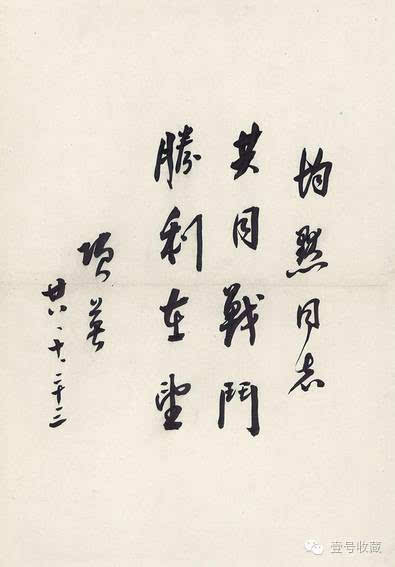 均默同志
共同戰鬥
勝利在望
項英
廿八、十、二十二
壹号收藏